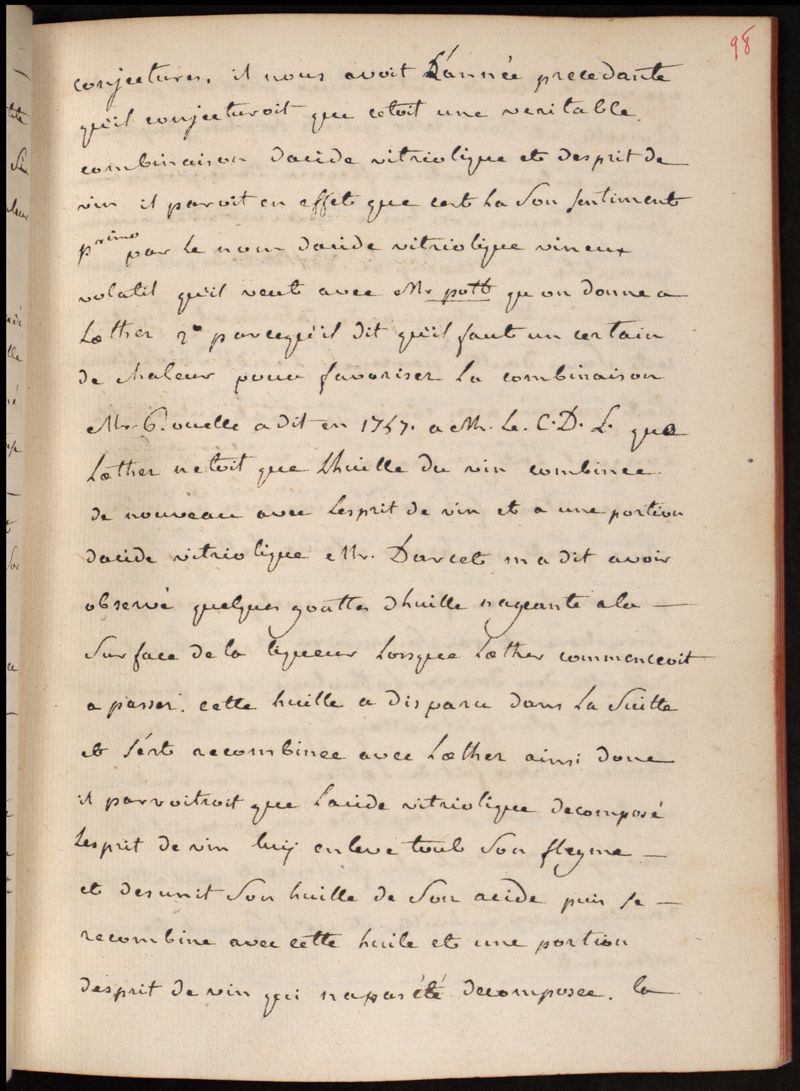 98
conjectures. il nous avoit L'année precedante
qu'il conjecturoit que cetoit une veritable
combinaison dacide vitriolique et desprit de
vin il paroit en effet que cest La Son sentiment
primo par Le nom dacide vitriolique vineux
volatil qu'il veut avec Mr. pott qu on donne a
Lœther 2° parcequ'il dit qu'il faut un certain
de chaleur pour favoriser la combinaison
Mr. Rouelle a dit en 1747. a Mr. Le. C. D. L. que
Lœther netoit que Lhuille du vin combinee
de nouveau avec Lesprit de vin et a une portion
dacide vitriolique Mr. Darcet m a dit avoir
observé quelques gouttes dhuille nageante a la —
Surface de la liqueur Lorsque Lœther commenceoit
a passer. cette huille a disparu dans La Suitte
et s'est recombinee avec Lœther ainsi donc
il parroitroit que Lacide vitriolique decomposé
Lesprit de vin luy enleve tout Son flegme —
et desunit Son huille de Son acide puis se —
recombine avec cette huile et une portion
desprit de vin qui na pas été decomposee. la